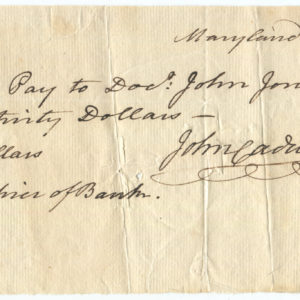 Maryland
Pay to Doct. John Jon
Dollars —
llars
John Cadw
hier of Bank.